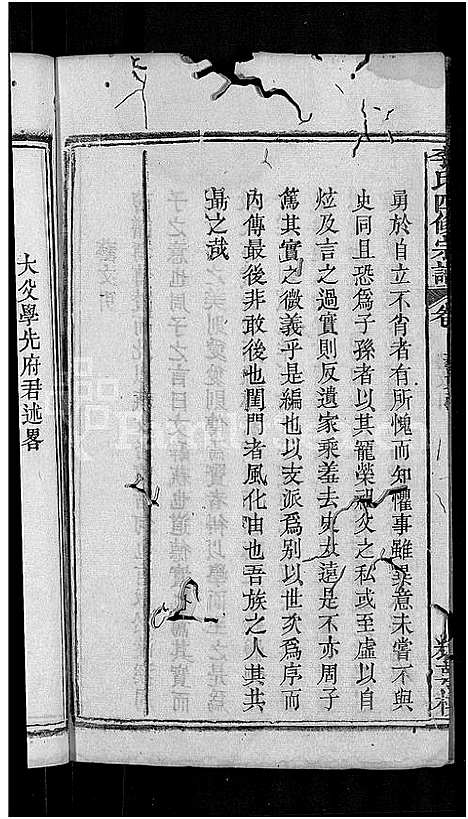 李氏四修宗譜 卷
勇於自立不肖者有所愧而知懼事雖異意未嘗不與
史同且恐爲子孫者以其寵榮祖父之私或至虛以自
炫及言之過實則反遺家乘羞去史遠是不亦周子
篤其實之微義乎是編也以支派爲別以世次爲序而
內傳最後非敢後也閨門者風化由也吾族之人其共
勗之哉
大父學先府君述畧